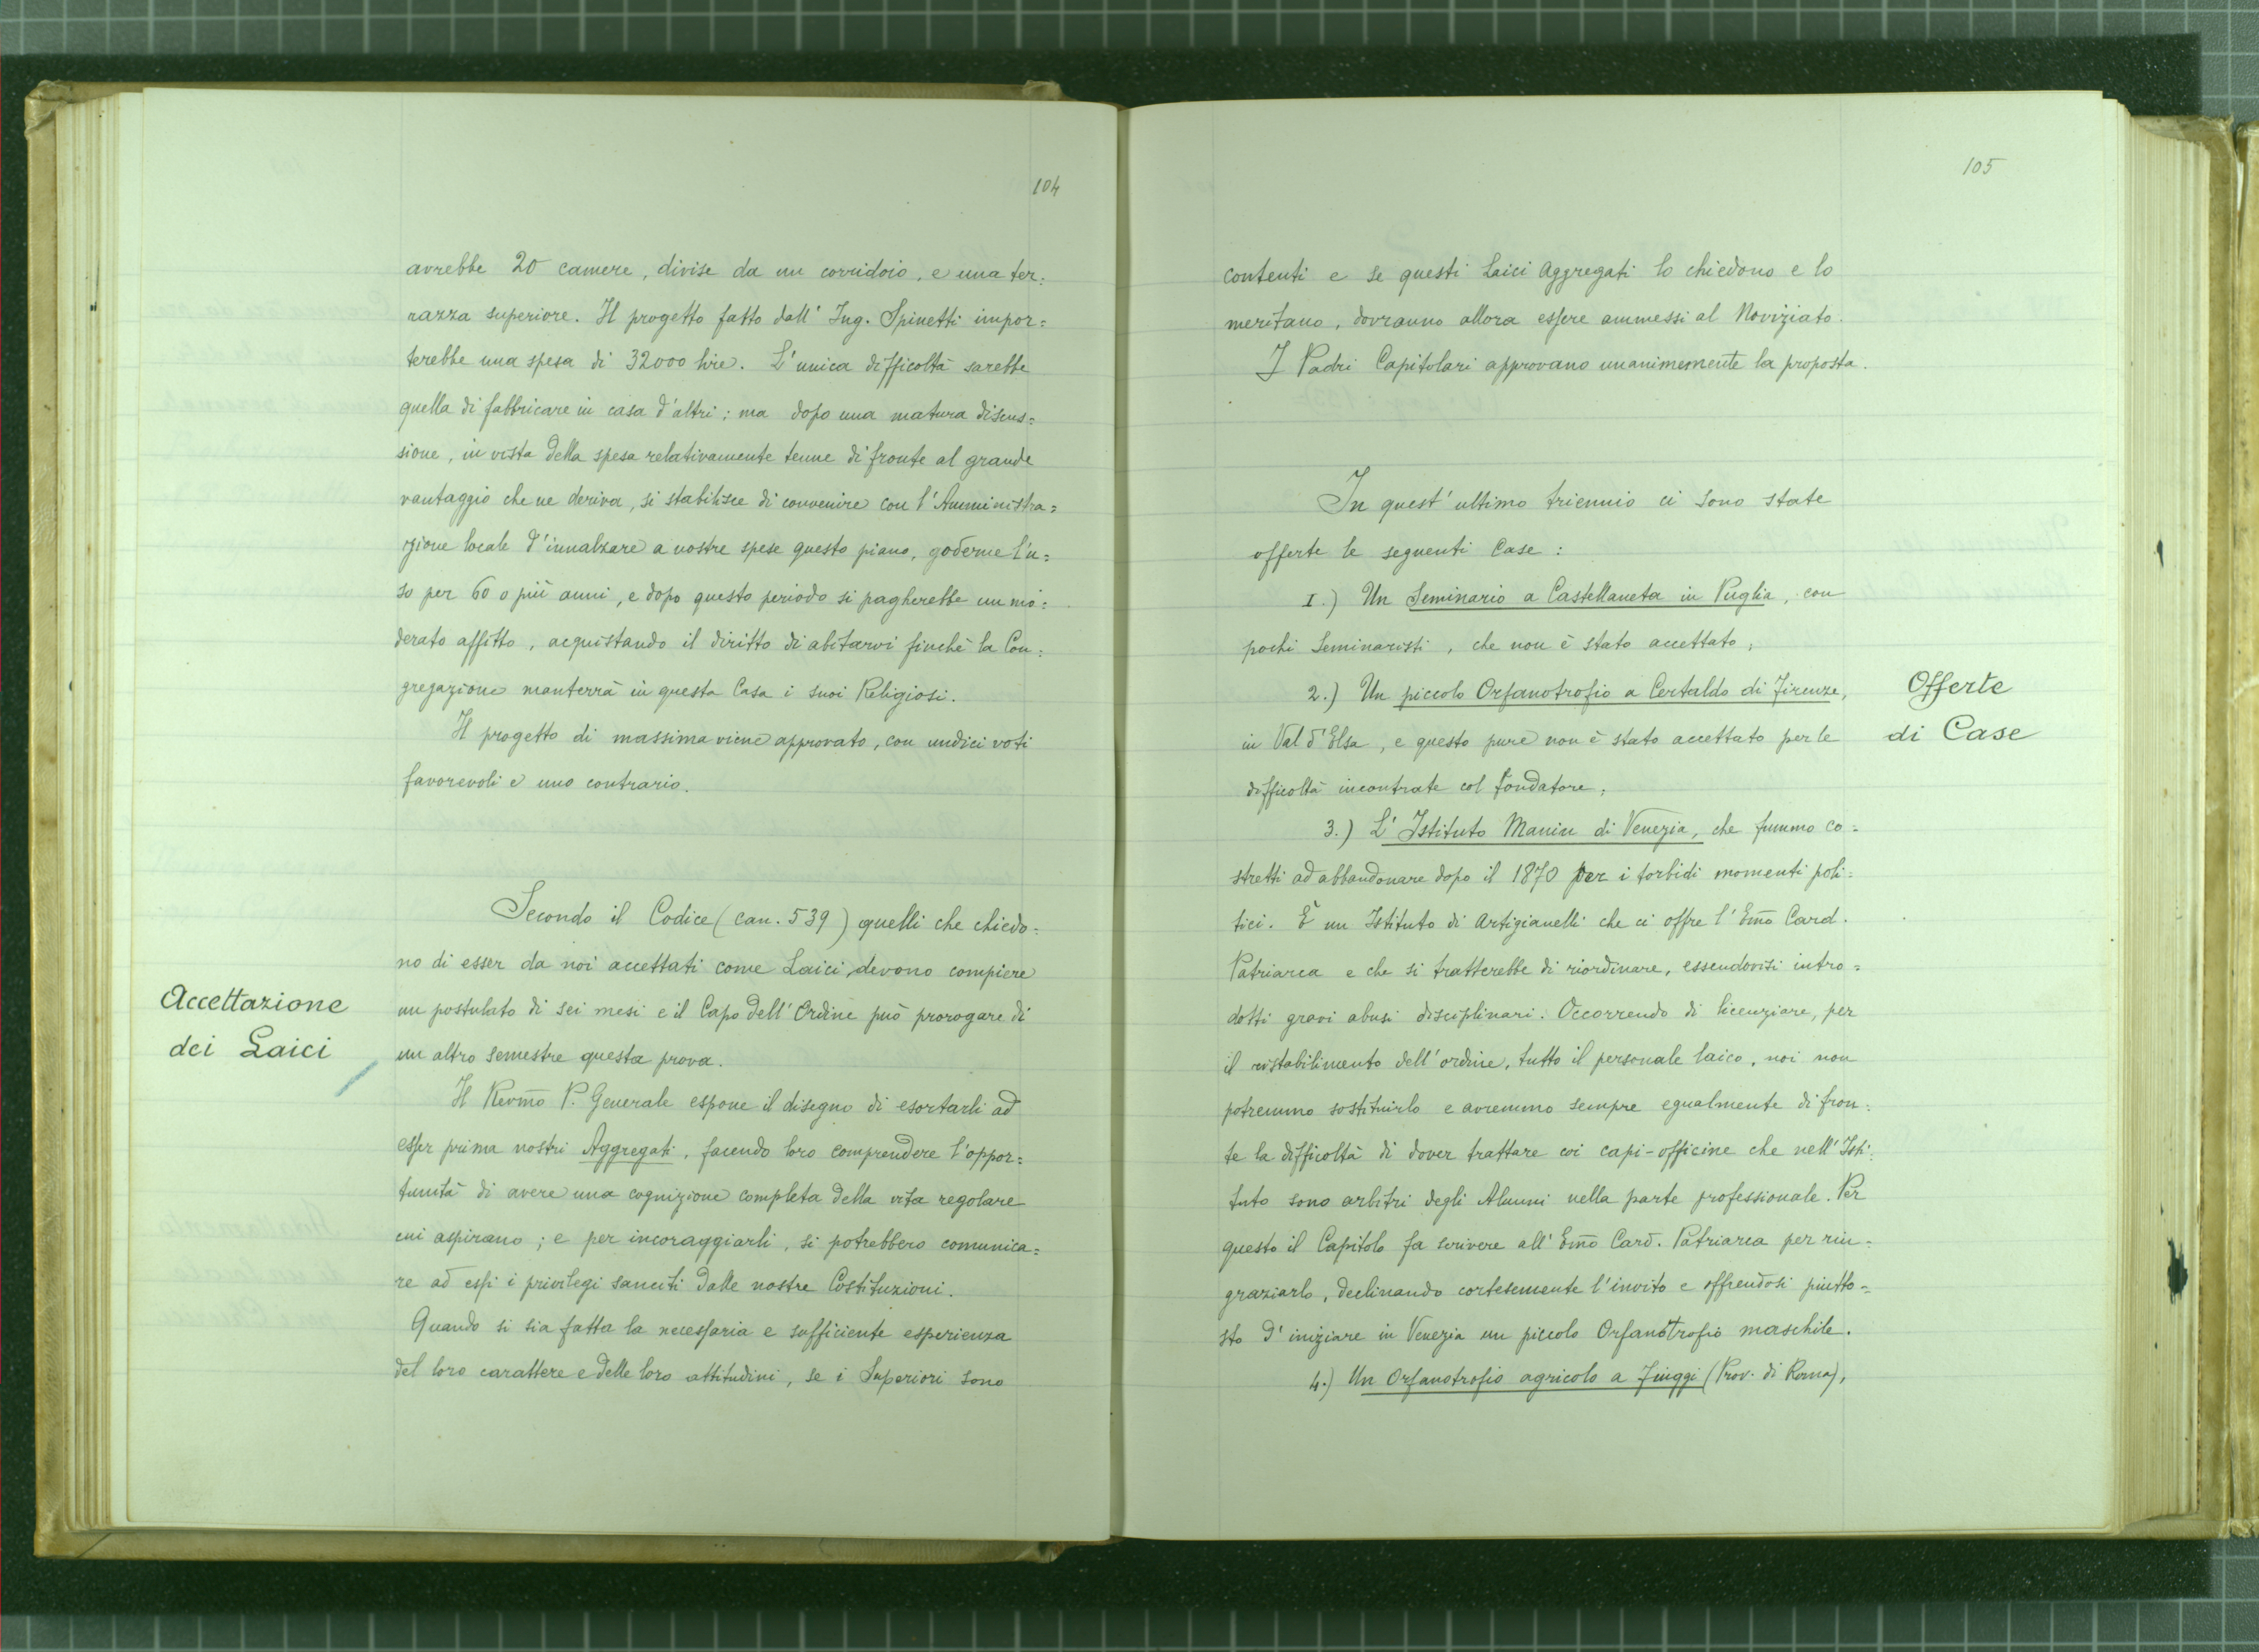 104
avrebbe 20 camere, divise da un corridoio, e una ter=
razza superiore. Il progetto fatto dall' Ing. Spinetti impor=
terebbe una spesa di 32000 lire. L'unica difficoltà sarebbe
quella di fabbricare in casa d'altri; ma dopo una matura discus=
sione, in vista della spesa relativamente tenue di fronte al grande
vantaggio che ne deriva, si stabilisce di convenire con l'Amministra=
zione locale d'innalzare a nostre spese questo piano, goderne l'u=
so per 60 o più anni, e dopo questo periodo si pagherebbe un mo=
derato affitto, acquistando il diritto di abitarvi finchè la Con=
gregazione manterrà in questa Casa i suoi Religiosi.
Il progetto di massima viene approvato, con undici voti
favorevoli e uno contrario.
Accettazione
dei Laici
Secondo il Codice (can. 539) quelli che chiedo=
no di esser da noi accettati come Laici, devono compiere
un postulato di sei mesi e il Capo dell'Ordine può prorogare di
un altro semestre questa prova.
Il Revm̃o P. Generale espone il disegno di esortarli ad
esser prima nostri Aggregati, facendo loro comprendere l'oppor=
tunità di avere una cognizione completa della vita regolare
cui aspirano; e per incoraggiarli, si potrebbero comunica=
re ad essi i privilegi sanciti dalle nostre Costituzioni.
Quando si sia fatta la necessaria e sufficiente esperienza
del loro carattere e delle loro attitudini, se i Superiori sono
105
contenti e se questi Laici Aggregati lo chiedono e lo
meritano, dovranno allora essere ammessi al Noviziato.
I Padri Capitolari approvano unanimemente la proposta.
Offerte
di Case
In quest'ultimo triennio ci sono state
offerte le seguenti Case:
1.) Un Seminario a Castellaneta in Puglia, con
pochi Seminaristi, che non è stato accettato;
2.) Un piccolo Orfanotrofio a Certaldo di Firenze,
in Val d'Elsa, e questo pure non è stato accettato per le
difficoltà incontrate col fondatore;
3.) L'Istituto Manin di Venezia, che fummo co=
stretti ad abbandonare dopo il 1870 per i torbidi momenti poli=
tici. È un Istituto di Artigianelli che ci offre l'Em̃o Card.
Patriarca e che si tratterebbe di riordinare, essendovisi intro=
dotti gravi abusi disciplinari. Occorrendo di licenziare, per
il ristabilimento dell'ordine, tutto il personale laico, noi non
potremmo sostituirlo e avremmo sempre egualmente di fron=
te la difficoltà di dover trattare coi capi-officine che nell'Isti=
tuto sono arbitri degli Alunni nella parte professionale. Per
questo il Capitolo fa scrivere all'Em̃o Card. Patriarca per rin=
graziarlo, declinando cortesemente l'invito e offrendosi piutto=
sto d'iniziare in Venezia un piccolo Orfanotrofio maschile.
4.) Un Orfanotrofio agricolo a Fiuggi (Prov. di Roma),